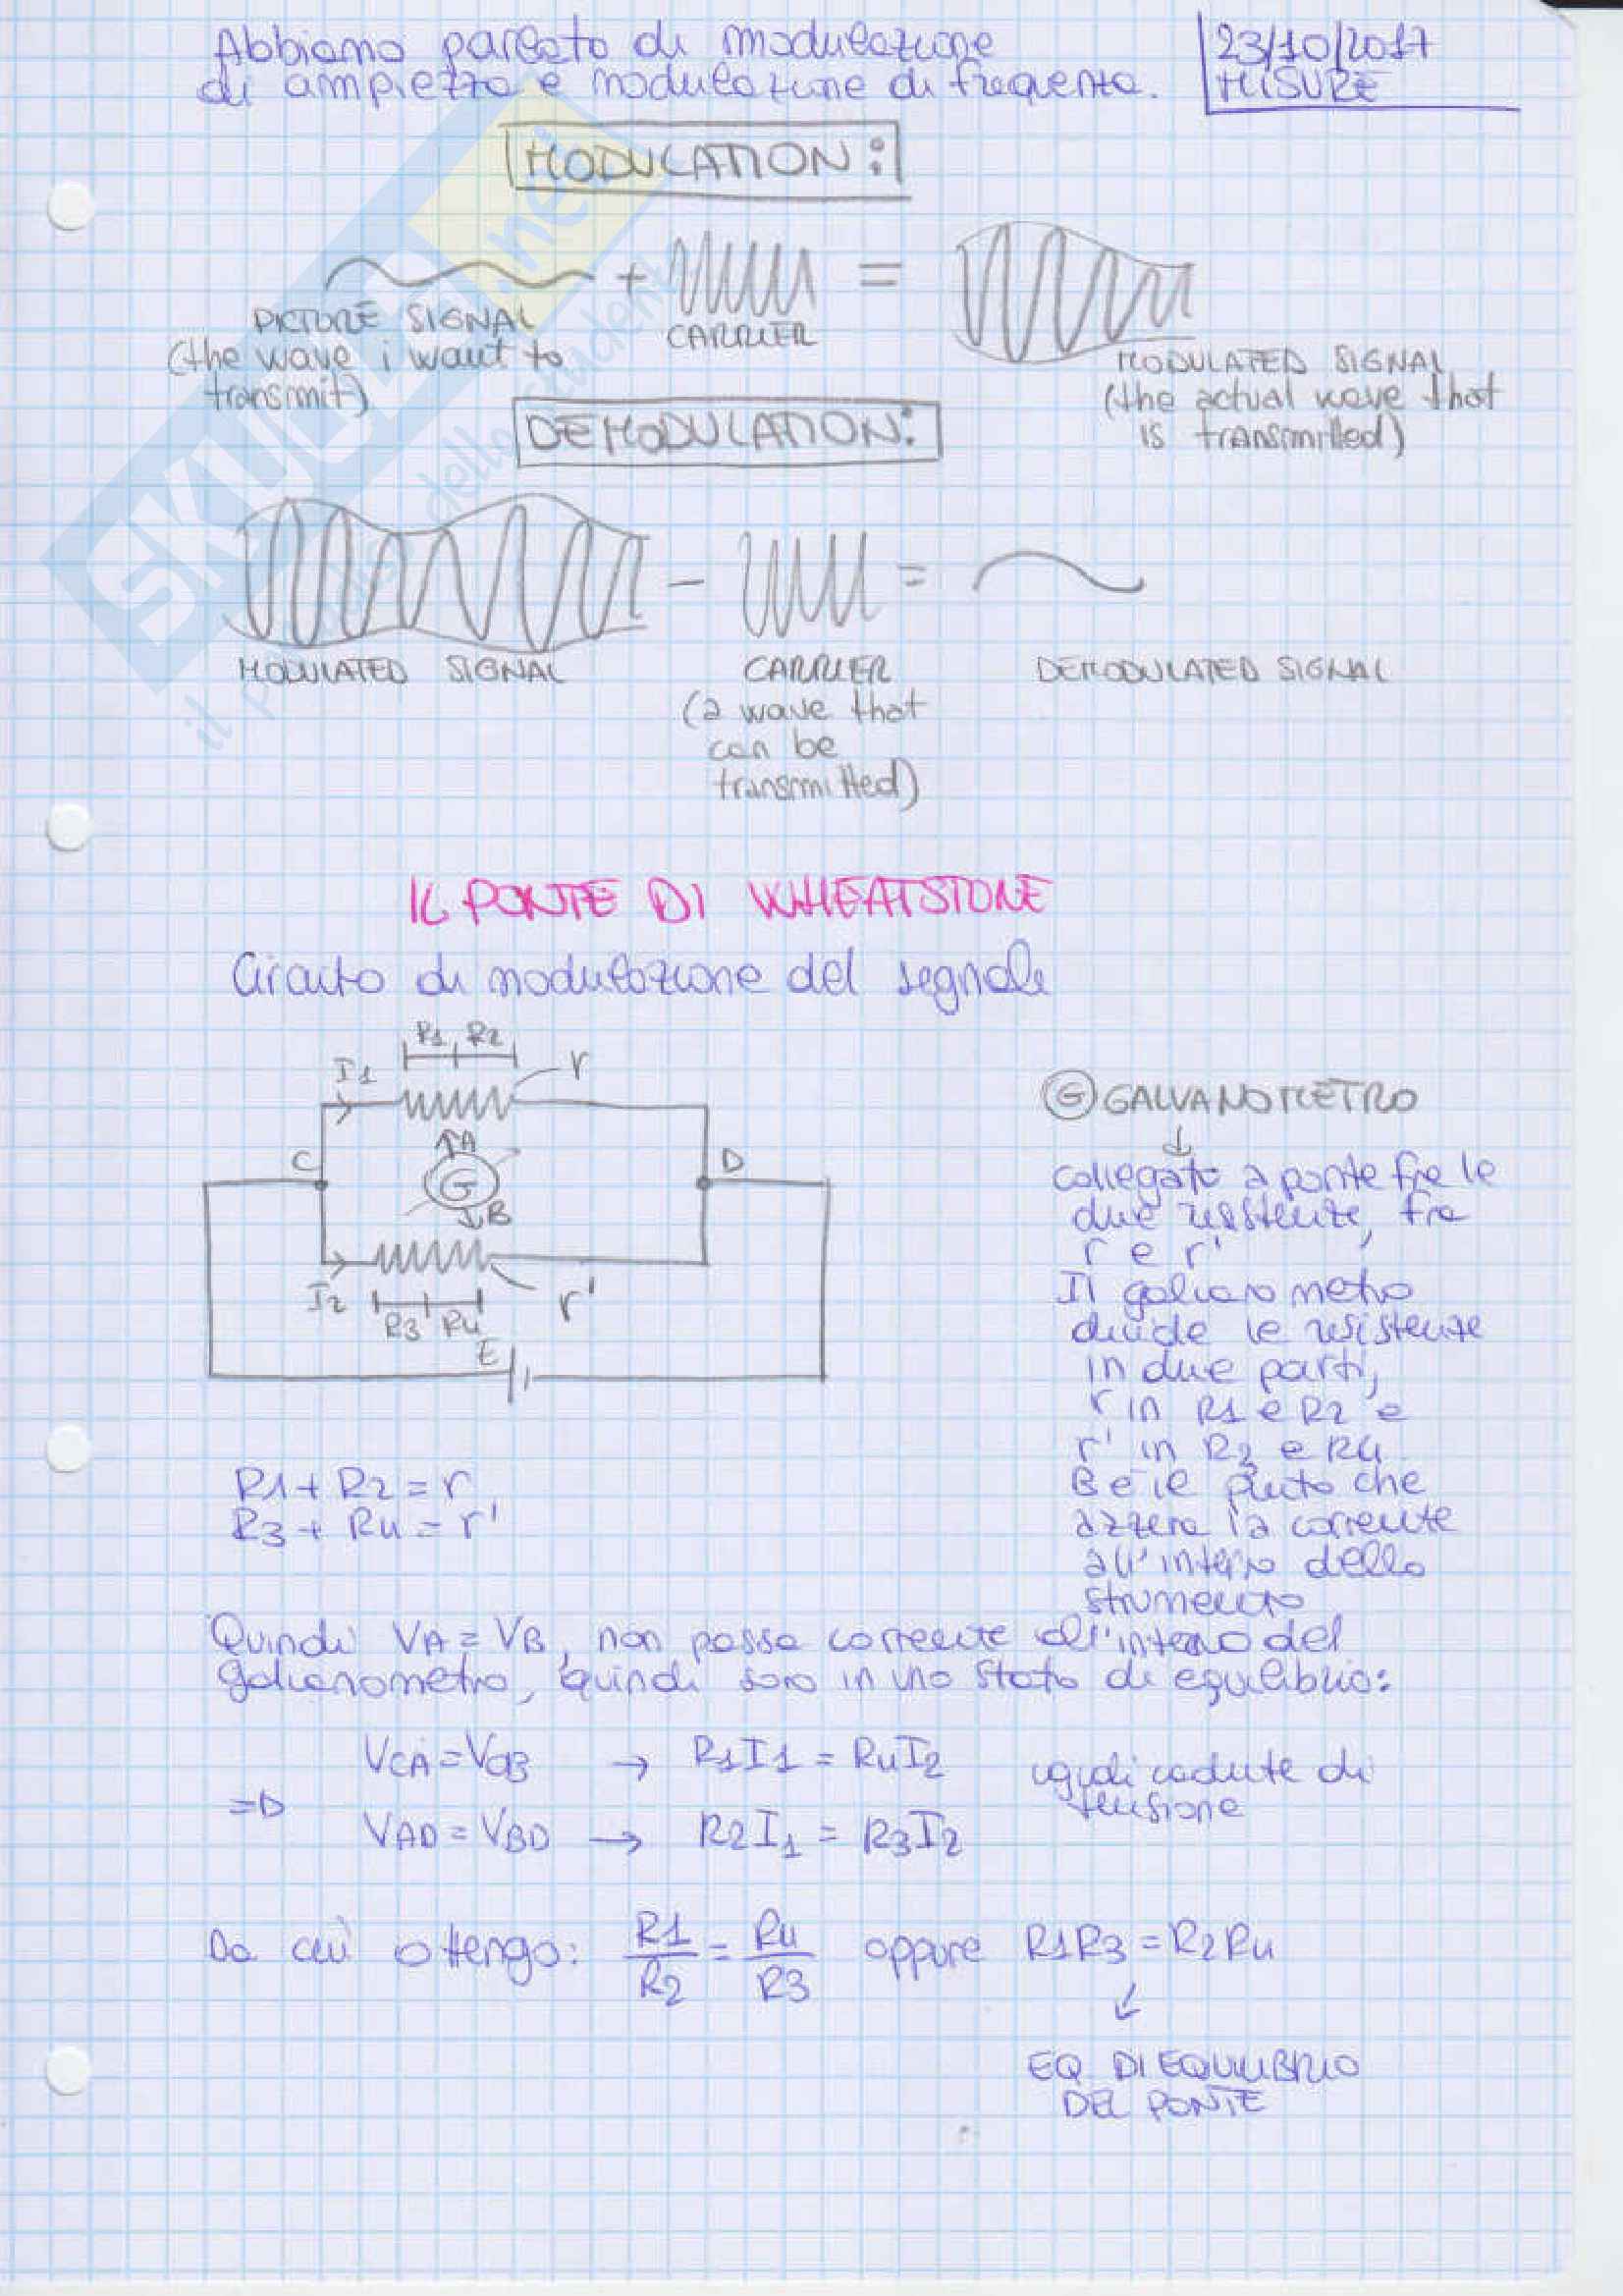 Abbiamo parlato di modulazione
di ampiezza e modulazione di frequenza.
23/10/2017
MISURE
MODULATION:
+
=
PICTURE SIGNAL
(the wave i want to
transmit)
CARRIER
MODULATED SIGNAL
(the actual wave that
is transmitted)
DEMODULATION:
-
=
MODULATED SIGNAL
CARRIER
(a wave that
can be
transmitted)
DEMODULATED SIGNAL
SKUOLA.net
il paradiso dello studente
IL PONTE DI WHEATSTONE
Circuito di modulazione del segnale
R1 R2
I1
r
A
C
G
D
B
I2
r'
R3 R4
E
G GALVANOMETRO
↓
collegato a ponte fra le
due resistenze, fra
r e r'
Il galvanometro
divide le resistenze
in due parti,
r in R1 e R2 e
r' in R3 e R4
B è il punto che
azzera la corrente
all'interno dello
strumento
R1 + R2 = r
R3 + R4 = r'
Quindi VA = VB, non passa corrente all'interno del
galvanometro, quindi sono in uno stato di equilibrio:
=D
VCA = VCB → R1I1 = R4I2
VAD = VBD → R2I1 = R3I2
uguali cadute di
tensione
Da cui ottengo: R1/R2 = R4/R3 oppure R1R3 = R2R4
↙
EQ DI EQUILIBRIO
DEL PONTE